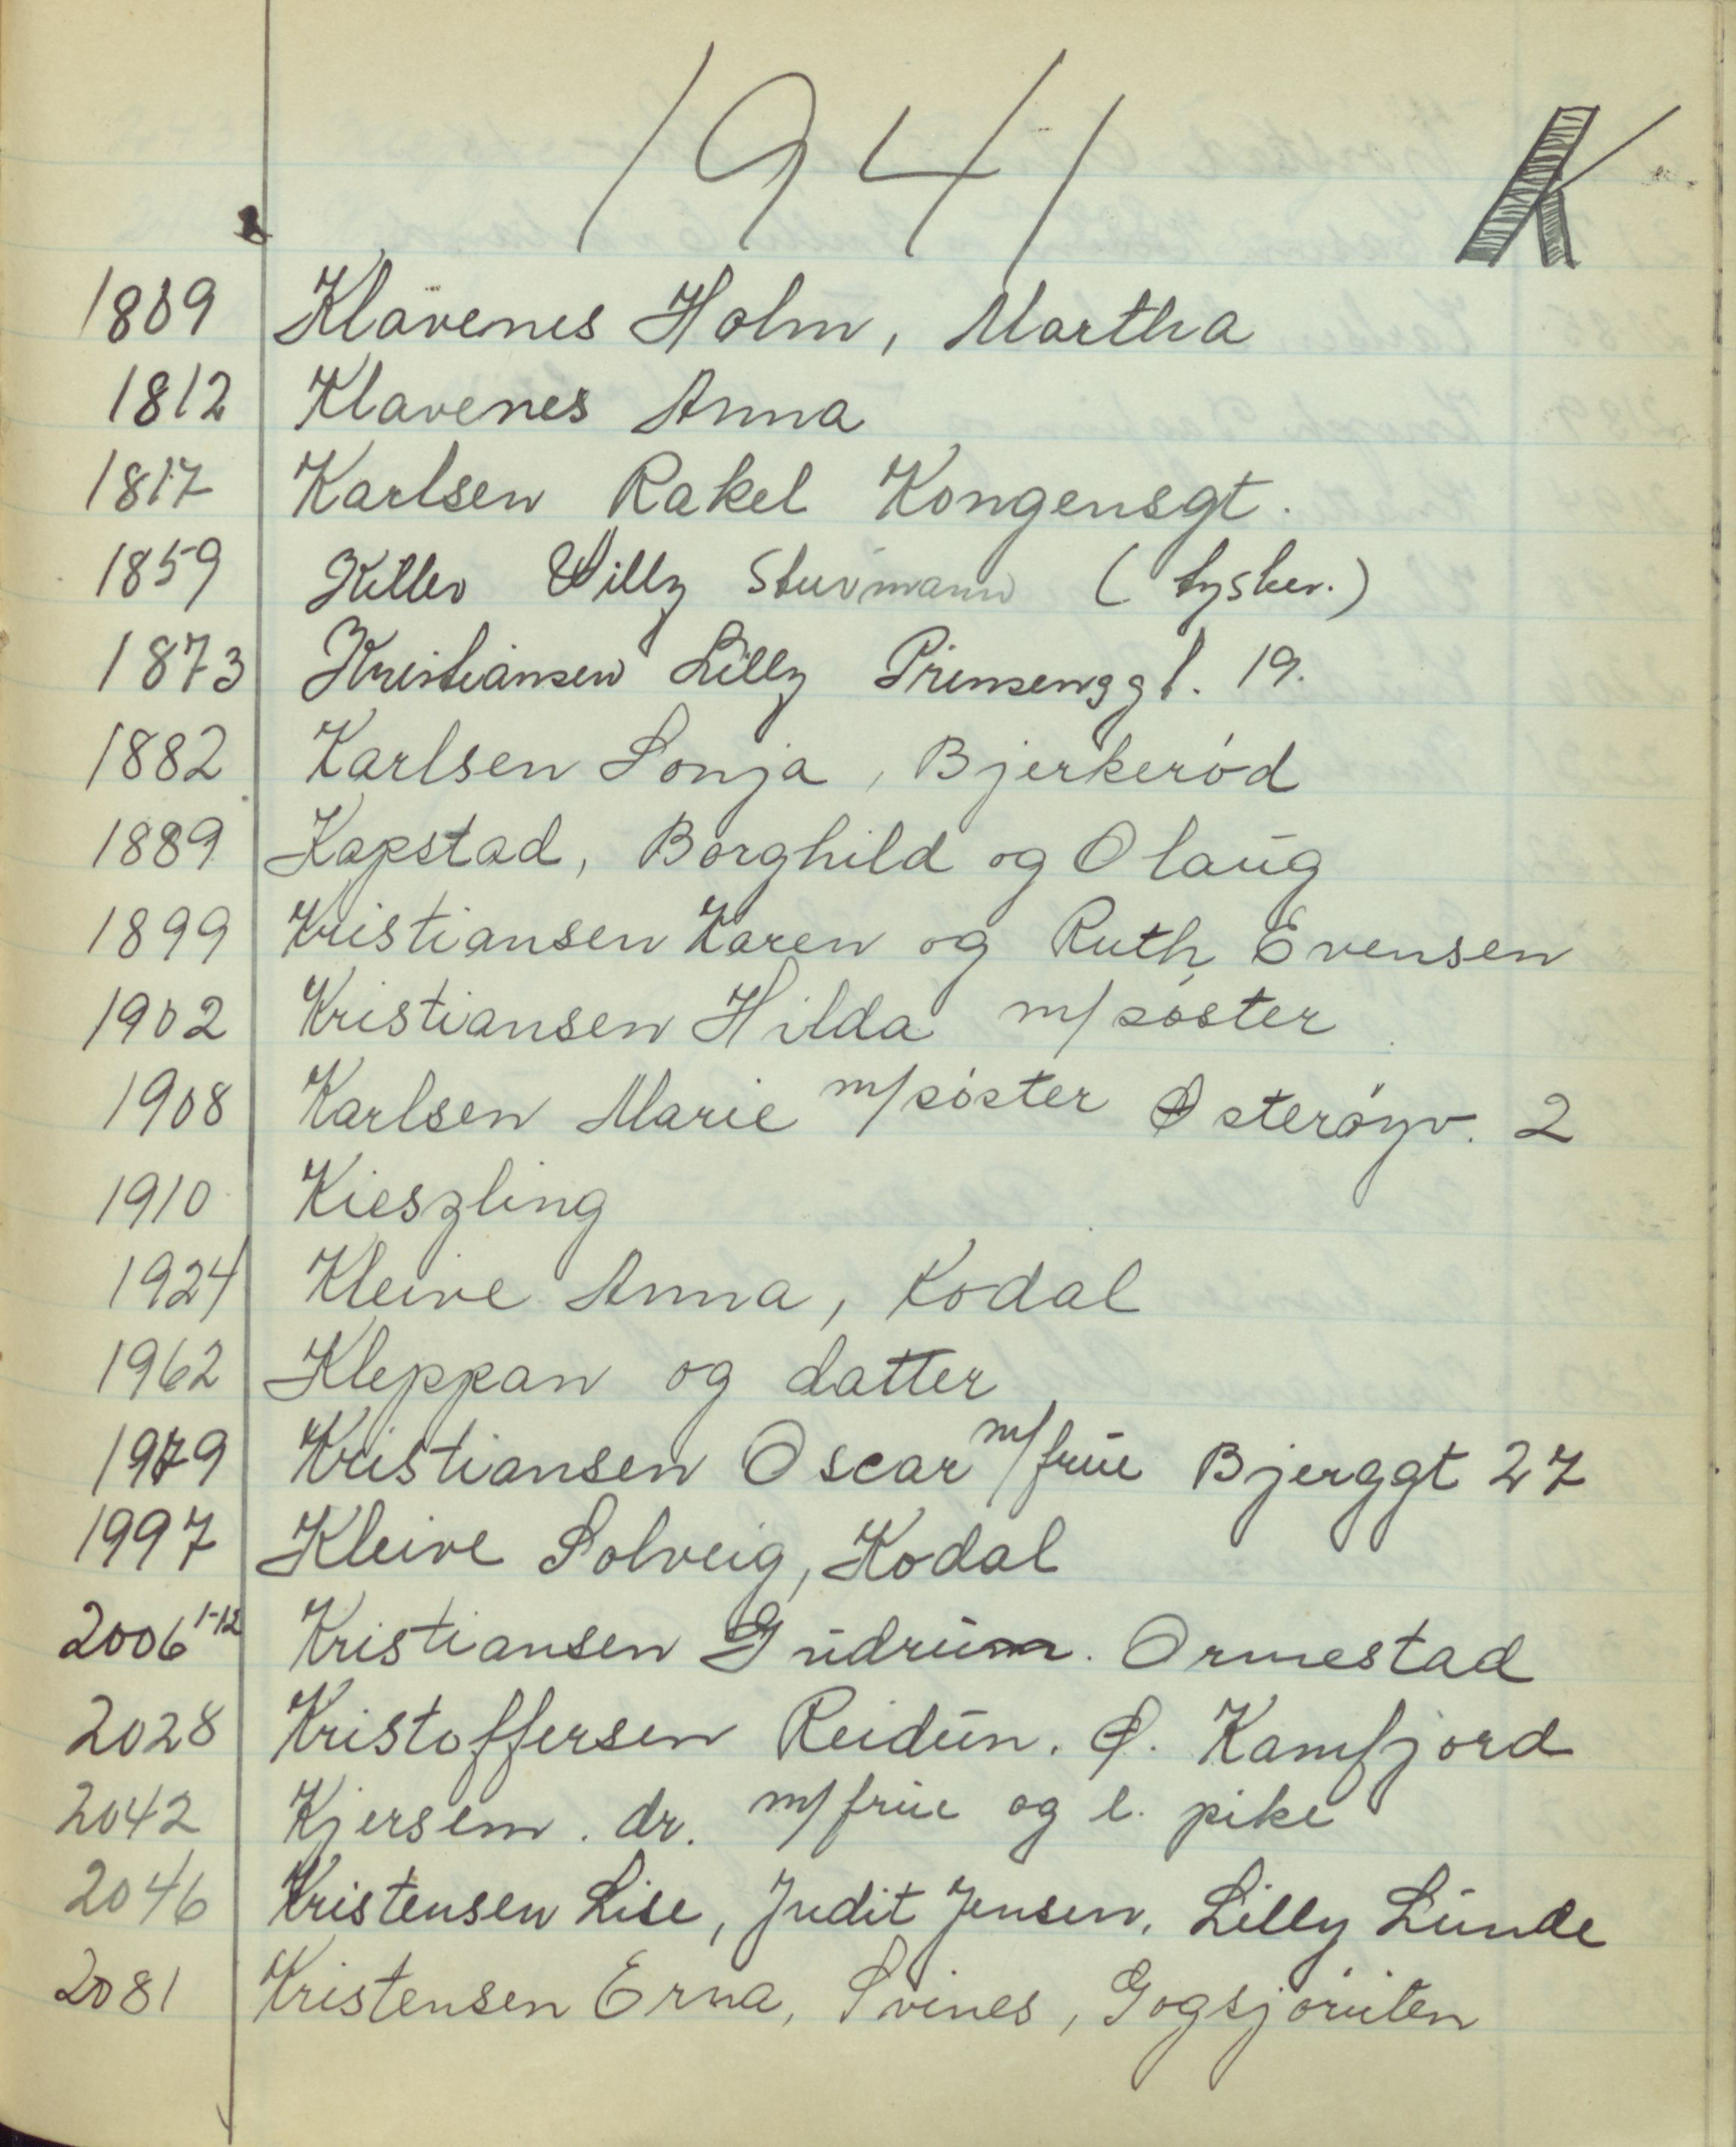 1941
K
1809 Klavenes Holm, Martha
1812 Klavenes Anna
1817 Karlsen Rakel Kongensgt.
1859 Willy Stuvmann (tysker.)
1873 Kristiansen Lilly Prinsensgt. 19.
1882 Karlsen Sonja, Bjerkeröd
1889 Kapstad, Borghild og Olaug
1899 Kristiansen Karen og Ruth Evensen
1902 Kristiansen Hilda m/söster
1908 Karlsen Marie m/söster Østeröyv. 2
1910 Kieszling
1924 Kleive Anna, Kodal
1962 Kleppan og datter
1979 Kristiansen Oscar m/frue Bjerggt 27
1997 Kleive Solveig, Kodal
2006 1-12 Kristiansen Gudrun. Ormestad
2028 Kristoffersen Reidun. Ø. Kamfjord
2042 Kjersem. dr. m/frue og l. pike
2046 Kristensen Lise, Judit Jensen, Lilly Lunde
2081 Kristensen Erna, Svines, Gogsjöruten